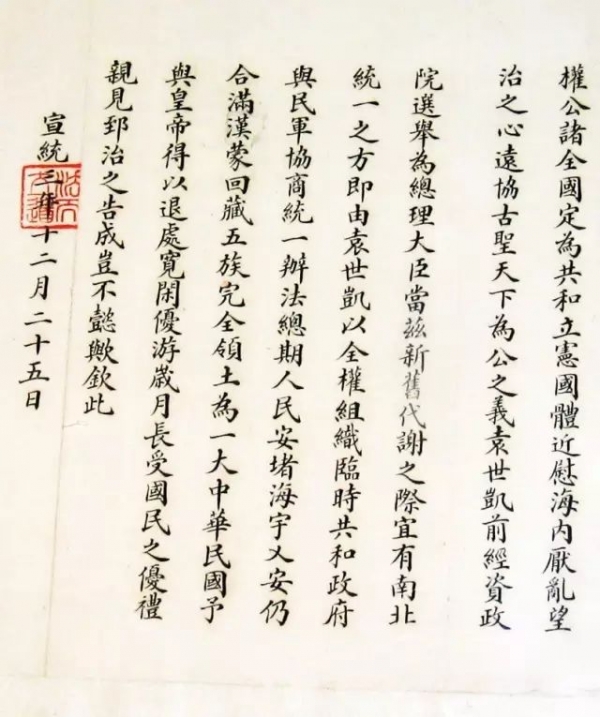 權公諸全國定為共和立憲國體近慰海內厭亂望
治之心遠協古聖天下為公之義袁世凱前經資政
院選舉為總理大臣當茲新舊代謝之際宜有南北
統一之方即由袁世凱以全權組織臨時共和政府
與民軍協商統一辦法總期人民安堵海宇乂安仍
合滿漢蒙回藏五族完全領土為一大中華民國予
與皇帝得以退處寬閑優游歲月長受國民之優禮
親見郅治之告成豈不懿歟欽此
宣統三年十二月二十五日